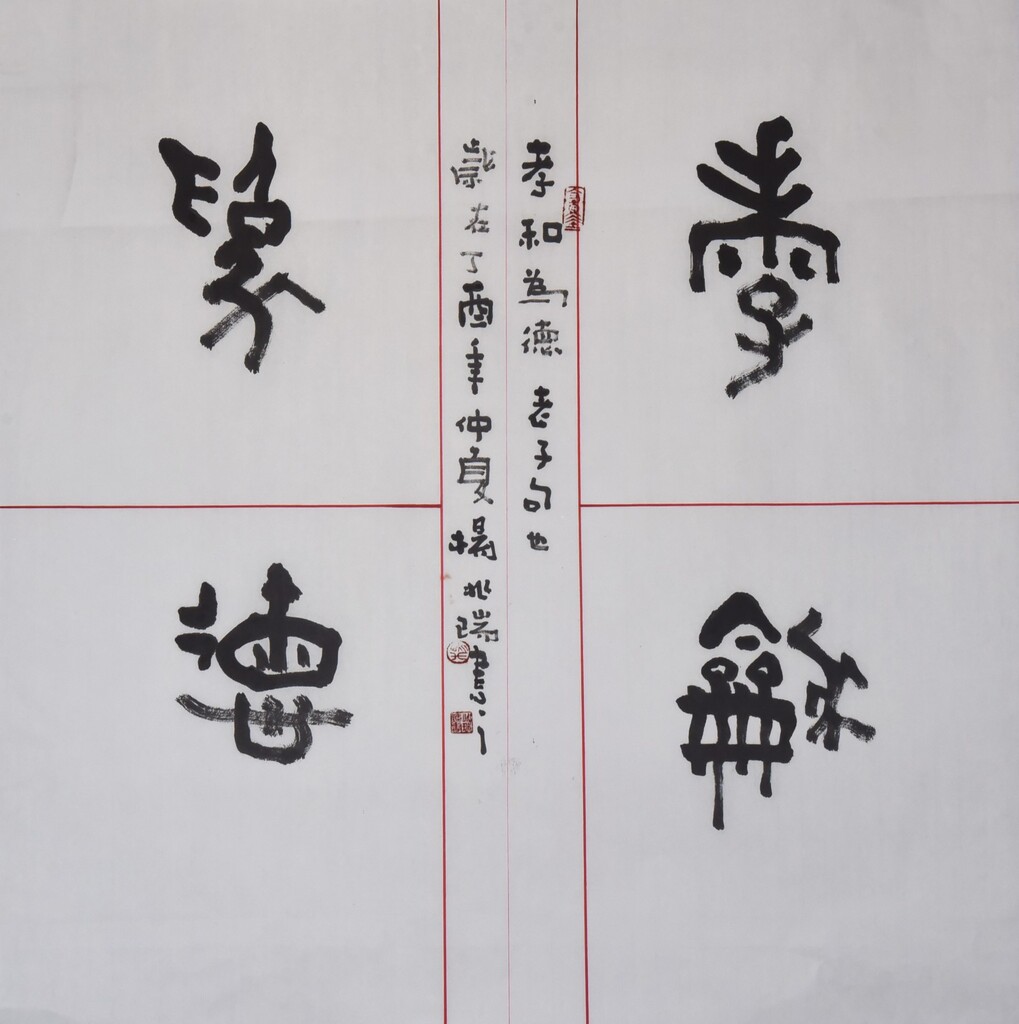 孝龢
為德
孝和為德 老子句也
歲在丁酉年仲夏 楊兆瑞書